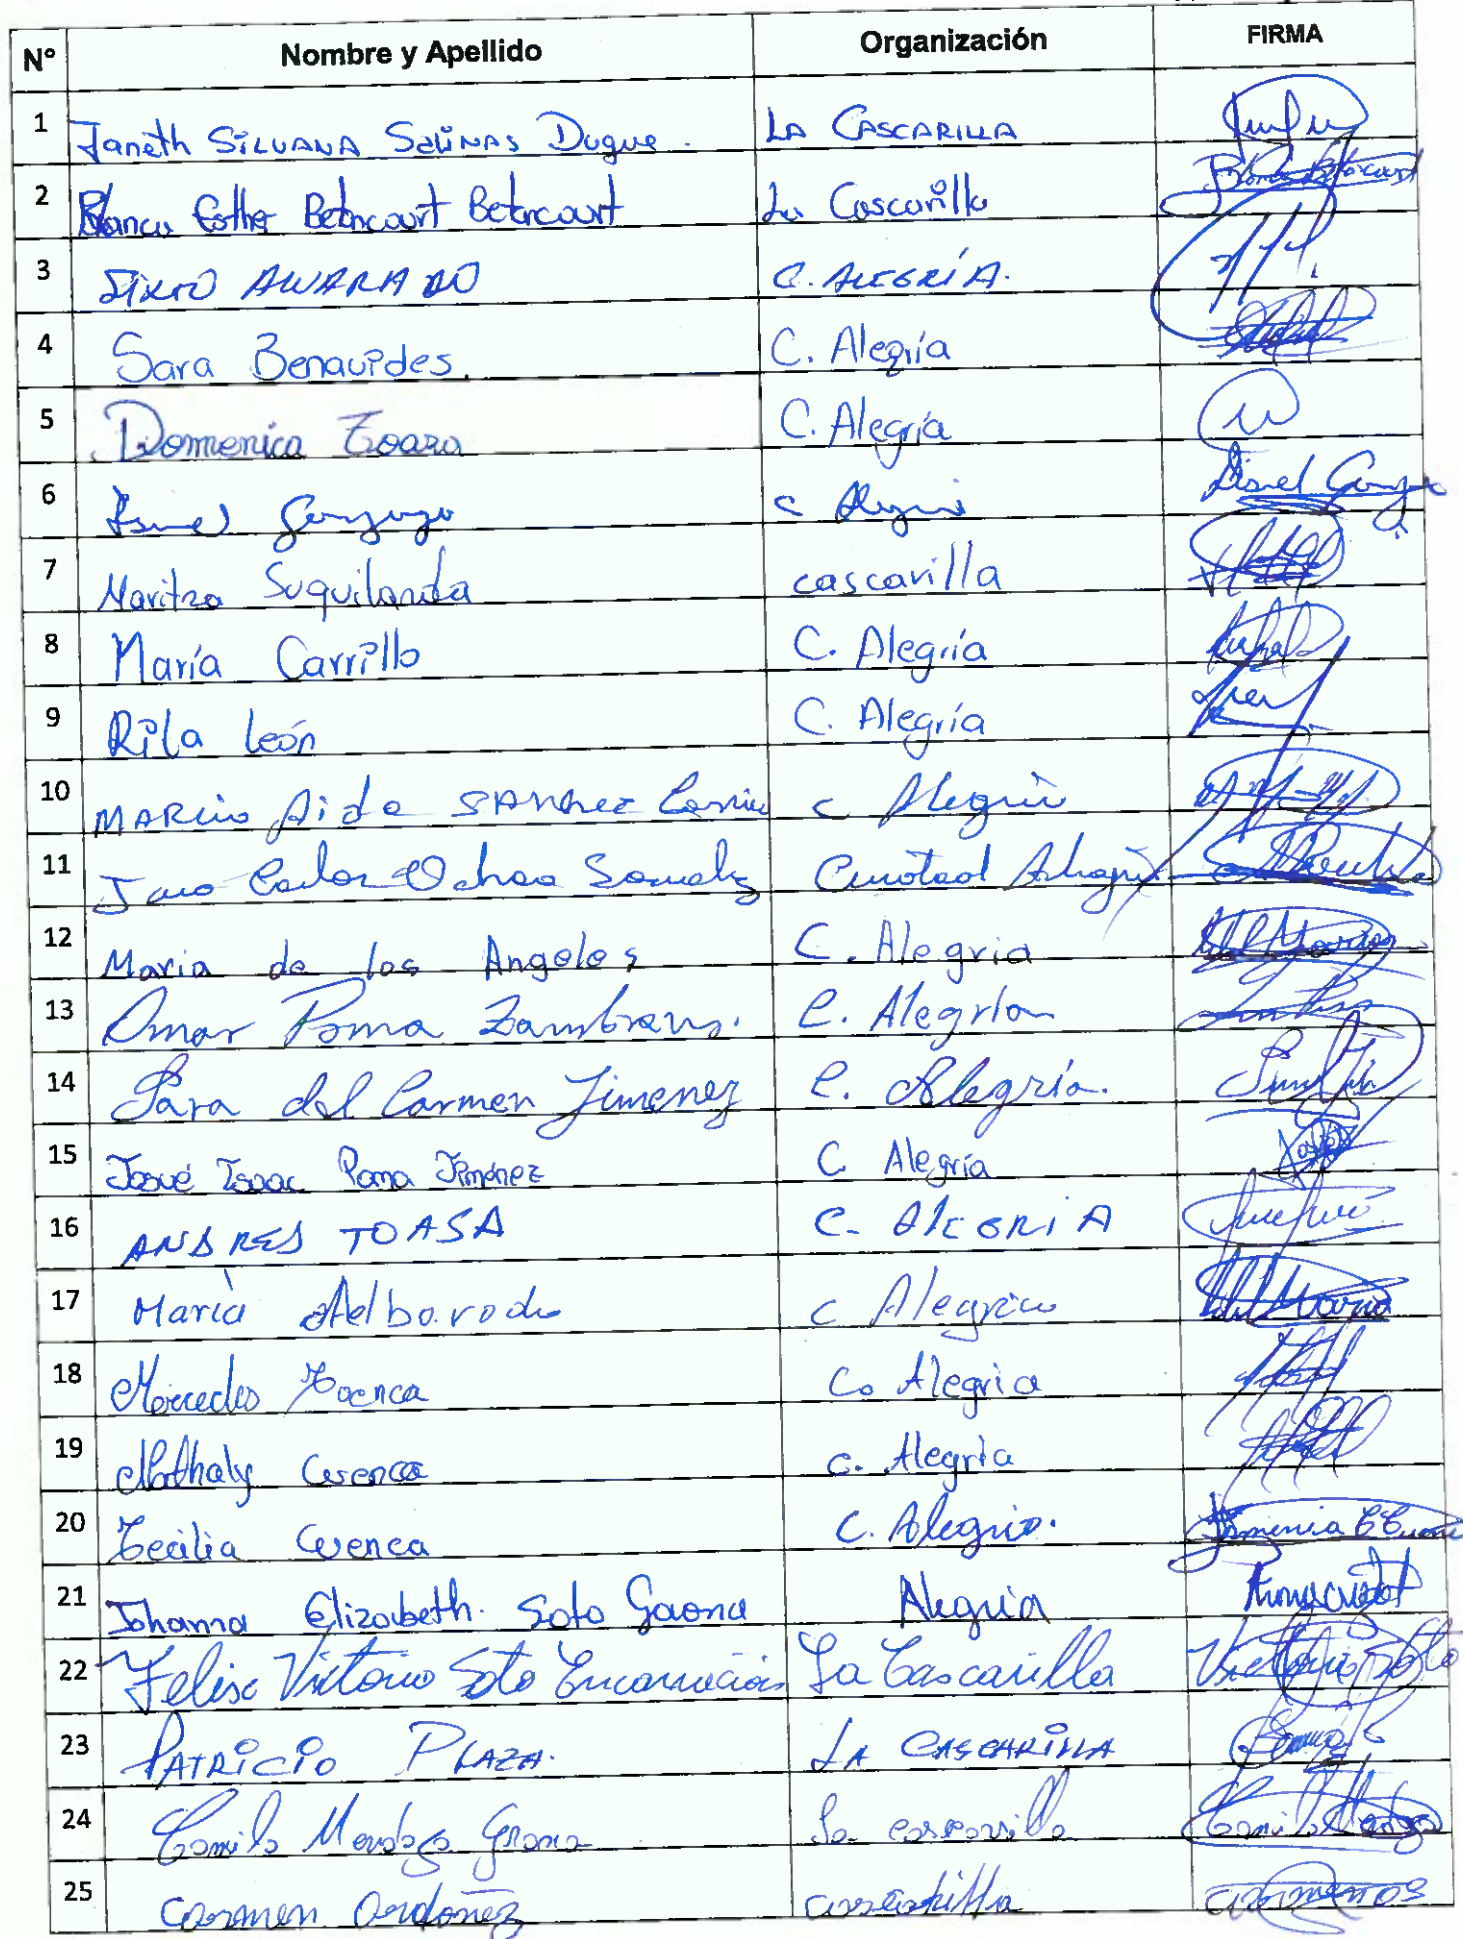 N° Nombre y Apellido Organización FIRMA
1 Janeth SILVANA SALINAS Duque. LA CASCARILLA
2 Blanca Esther Betancourt Betancourt La Cascarilla Blanca Betancourt
3 SIXTO ALVARADO C. ALEGRÍA.
4 Sara Benavides. C. Alegría
5 Domenica Toaza C. Alegría
6 Gonzaga C Alegria
7 Maritza Suquilanda cascarilla
8 María Carrillo C. Alegría
9 Rita León C. Alegría
10 MARCIA Aida SANCHEZ C Alegria
11 Carlos Ochoa Alegri
12 Maria de los Angeles C. Alegria Maria
13 Omar Poma Zambrano. C. Alegría
14 Sara del Carmen Jimenez C. Alegría.
15 Josué Isaac Poma Jiménez C Alegría
16 ANDRES TOASA C- ALEGRIA
17 Maria Alborodo C Alegria Maria
18 Mercedes Cuenca C. Alegria
19 Nathaly Cuenca C. Alegria
20 Cecilia Cuenca C. Alegria.
21 Johanna Elizabeth. Soto Gaona Alegria
22 Felix Victorio Soto Encarnación La Cascarilla Victorio Soto
23 PATRICIO PLAZA. LA CASCARILLA
24 Camilo Mendoza La cascarilla Camilo Mendoza
25 Carmen Ordoñez cascarilla